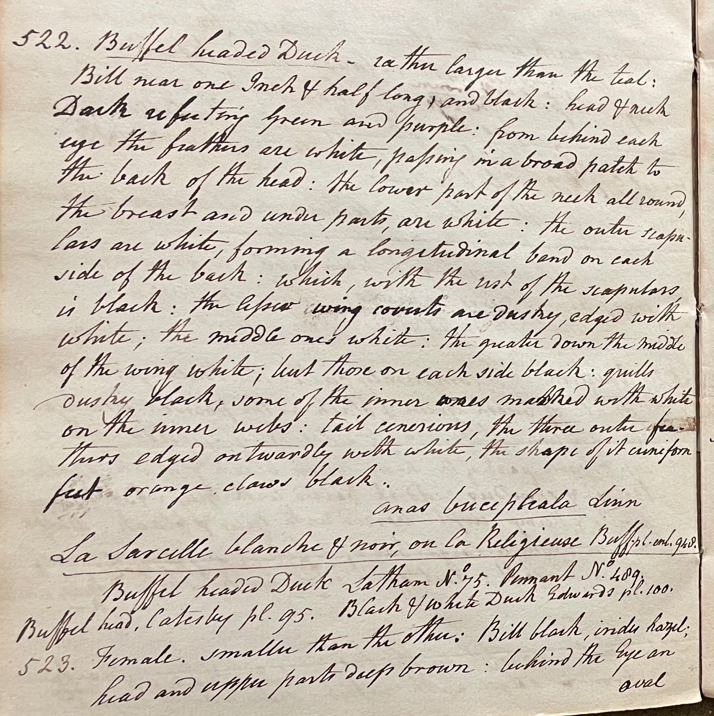 522. Buffel headed Duck - rather larger than the teal:
Bill near one Inch & half long, and black: head & neck
Dark reflecting Green and purple: from behind each
eye the feathers are white, passing in a broad patch to
the back of the head: the lower part of the neck all round,
the breast and under parts, are white: the outer scapu-
lars are white, forming a longitudinal band on each
side of the back: which, with the rest of the scapulars
is black: the lesser wing coverts are dusky, edged with
white; the middle ones white: the greater down the middle
of the wing white; but those on each side black: quills
dusky black, some of the inner ones marked with white
on the inner webs: tail cenerious, the three outer fea-
thers edged outwardly with white, the shape of it cuniform
feet orange. claws black:
anas bucephala Linn
La Sarcelle blanche & noir, ou la Religieuse Buff. pl. enl. 948.
Buffel headed Duck Latham No. 75. Pennant No. 489.
Buffel head, Catesby pl. 95. Black & white Duck Edwards pl. 100.
523. Female. smaller than the other: Bill black, irides hazel;
head and upper parts deep brown: behind the Eye an
oval